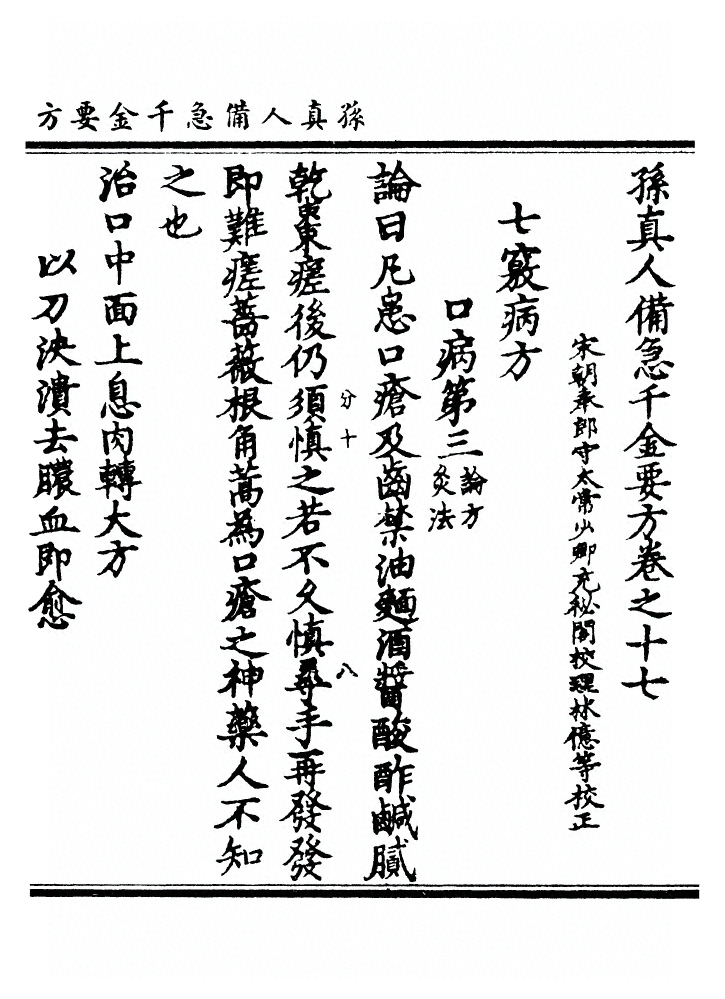 孫真人備急千金要方
孫真人備急千金要方卷之十七
宋朝奉郎守太常少卿充秘閣校理林億等校正
七竅病方
口病第三 論方 灸法
論曰凡患口瘡及齒禁油麵酒醬酸酢鹹膩
乾棗瘥後仍須慎之若不久慎尋手再發發
分十
八
即難瘥薔薇根角蒿為口瘡之神藥人不知
之也
治口中面上息肉轉大方
以刀決潰去膿血即愈